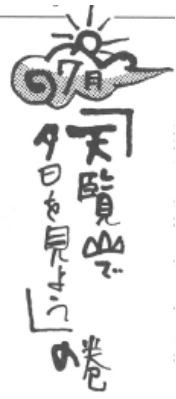 の7月
「天覧山で
夕日を見よう」の巻